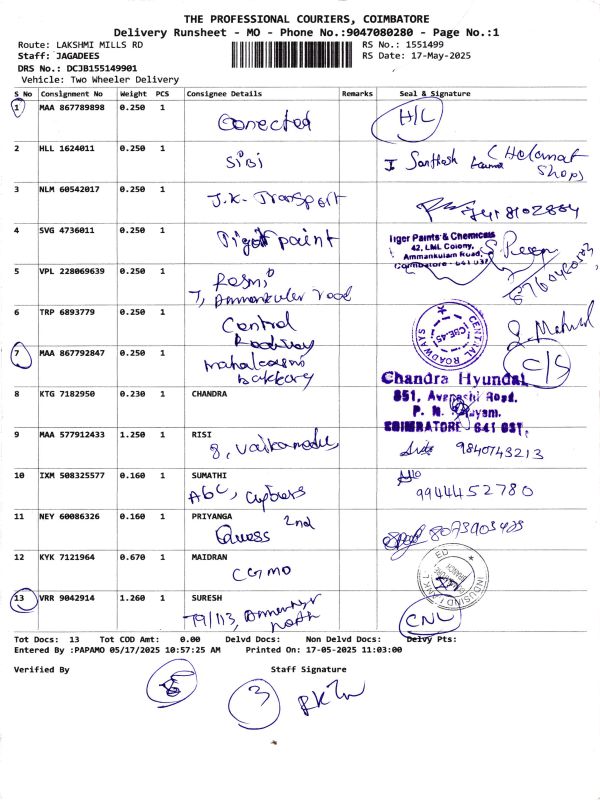 THE PROFESSIONAL COURIERS, COIMBATORE
Delivery Runsheet - MO - Phone No.:9047080280 - Page No.:1
Route: LAKSHMI MILLS RD
RS No.: 1551499
Staff: JAGADEES
RS Date: 17-May-2025
DRS No.: DCJB155149901
Vehicle: Two Wheeler Delivery
S No Consignment No Weight PCS Consignee Details Remarks Seal & Signature
1 MAA 867789898 0.250 1
Conected
H/L
2 HLL 1624011 0.250 1
SiBi
Santhosh
Shops
3 NLM 60542017 0.250 1
J.K. Transport
4 SVG 4736011 0.250 1
Tiger paint
Tiger Paints & Chemicals
42, LML Colony,
Ammankulam Road,
Coimbatore - 641 037
5 VPL 228069639 0.250 1
Rasmi
7, Ammankulam road
6 TRP 6893779 0.250 1
Central
Roadway
CENTRAL ROADWAYS
CBE-45
7 MAA 867792847 0.250 1
Mahalaxmi
bakkary
C/S
8 KTG 7182950 0.230 1 CHANDRA
Chandra Hyundai
851, Avanashi Road.
9 MAA 577912433 1.250 1 RISI
9840743213
10 IXM 508325577 0.160 1 SUMATHI
ABC,
9944452780
11 NEY 60086326 0.160 1 PRIYANGA
Quess 2nd
8073903423
12 KYK 7121964 0.670 1 MAIDRAN
CGMO
INDUSIND BANK
13 VRR 9042914 1.260 1 SURESH
79/113,
north
CNL
Tot Docs: 13 Tot COD Amt: 0.00 Delvd Docs: Non Delvd Docs: Delvy Pts:
Entered By :PAPAMO 05/17/2025 10:57:25 AM Printed On: 17-05-2025 11:03:00
Verified By Staff Signature
3